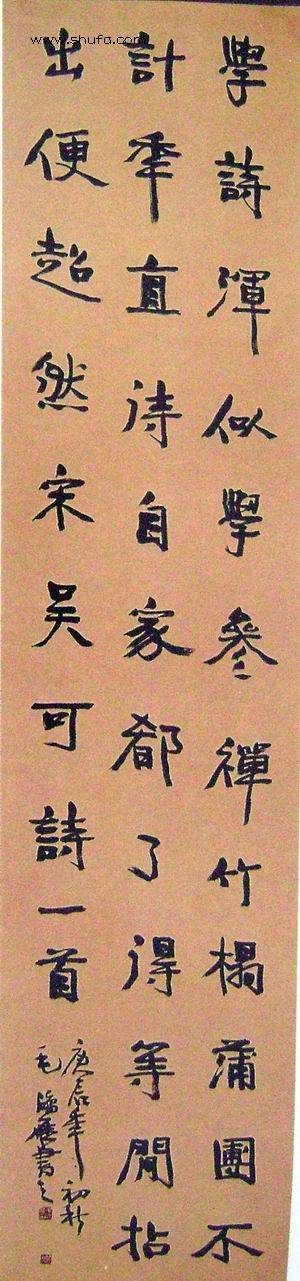 www.shufa.com
學詩渾似學參禪竹榻蒲團不
計年直待自家都了得等閒拈
出便超然宋吳可詩一首
庚辰年初秋
毛
書之